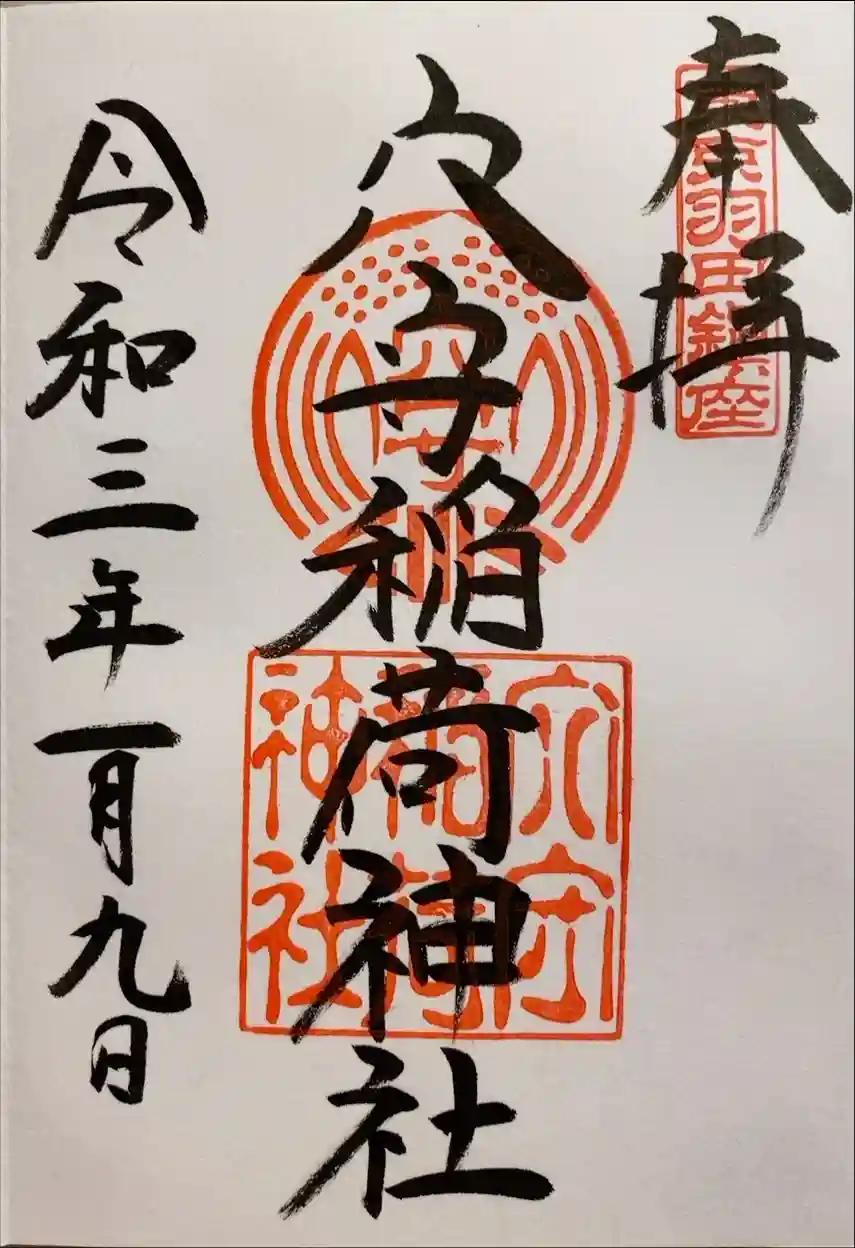 奉拝
東京羽田鎮座
穴守稲荷神社
穴守
稲荷
神社
令和三年一月九日